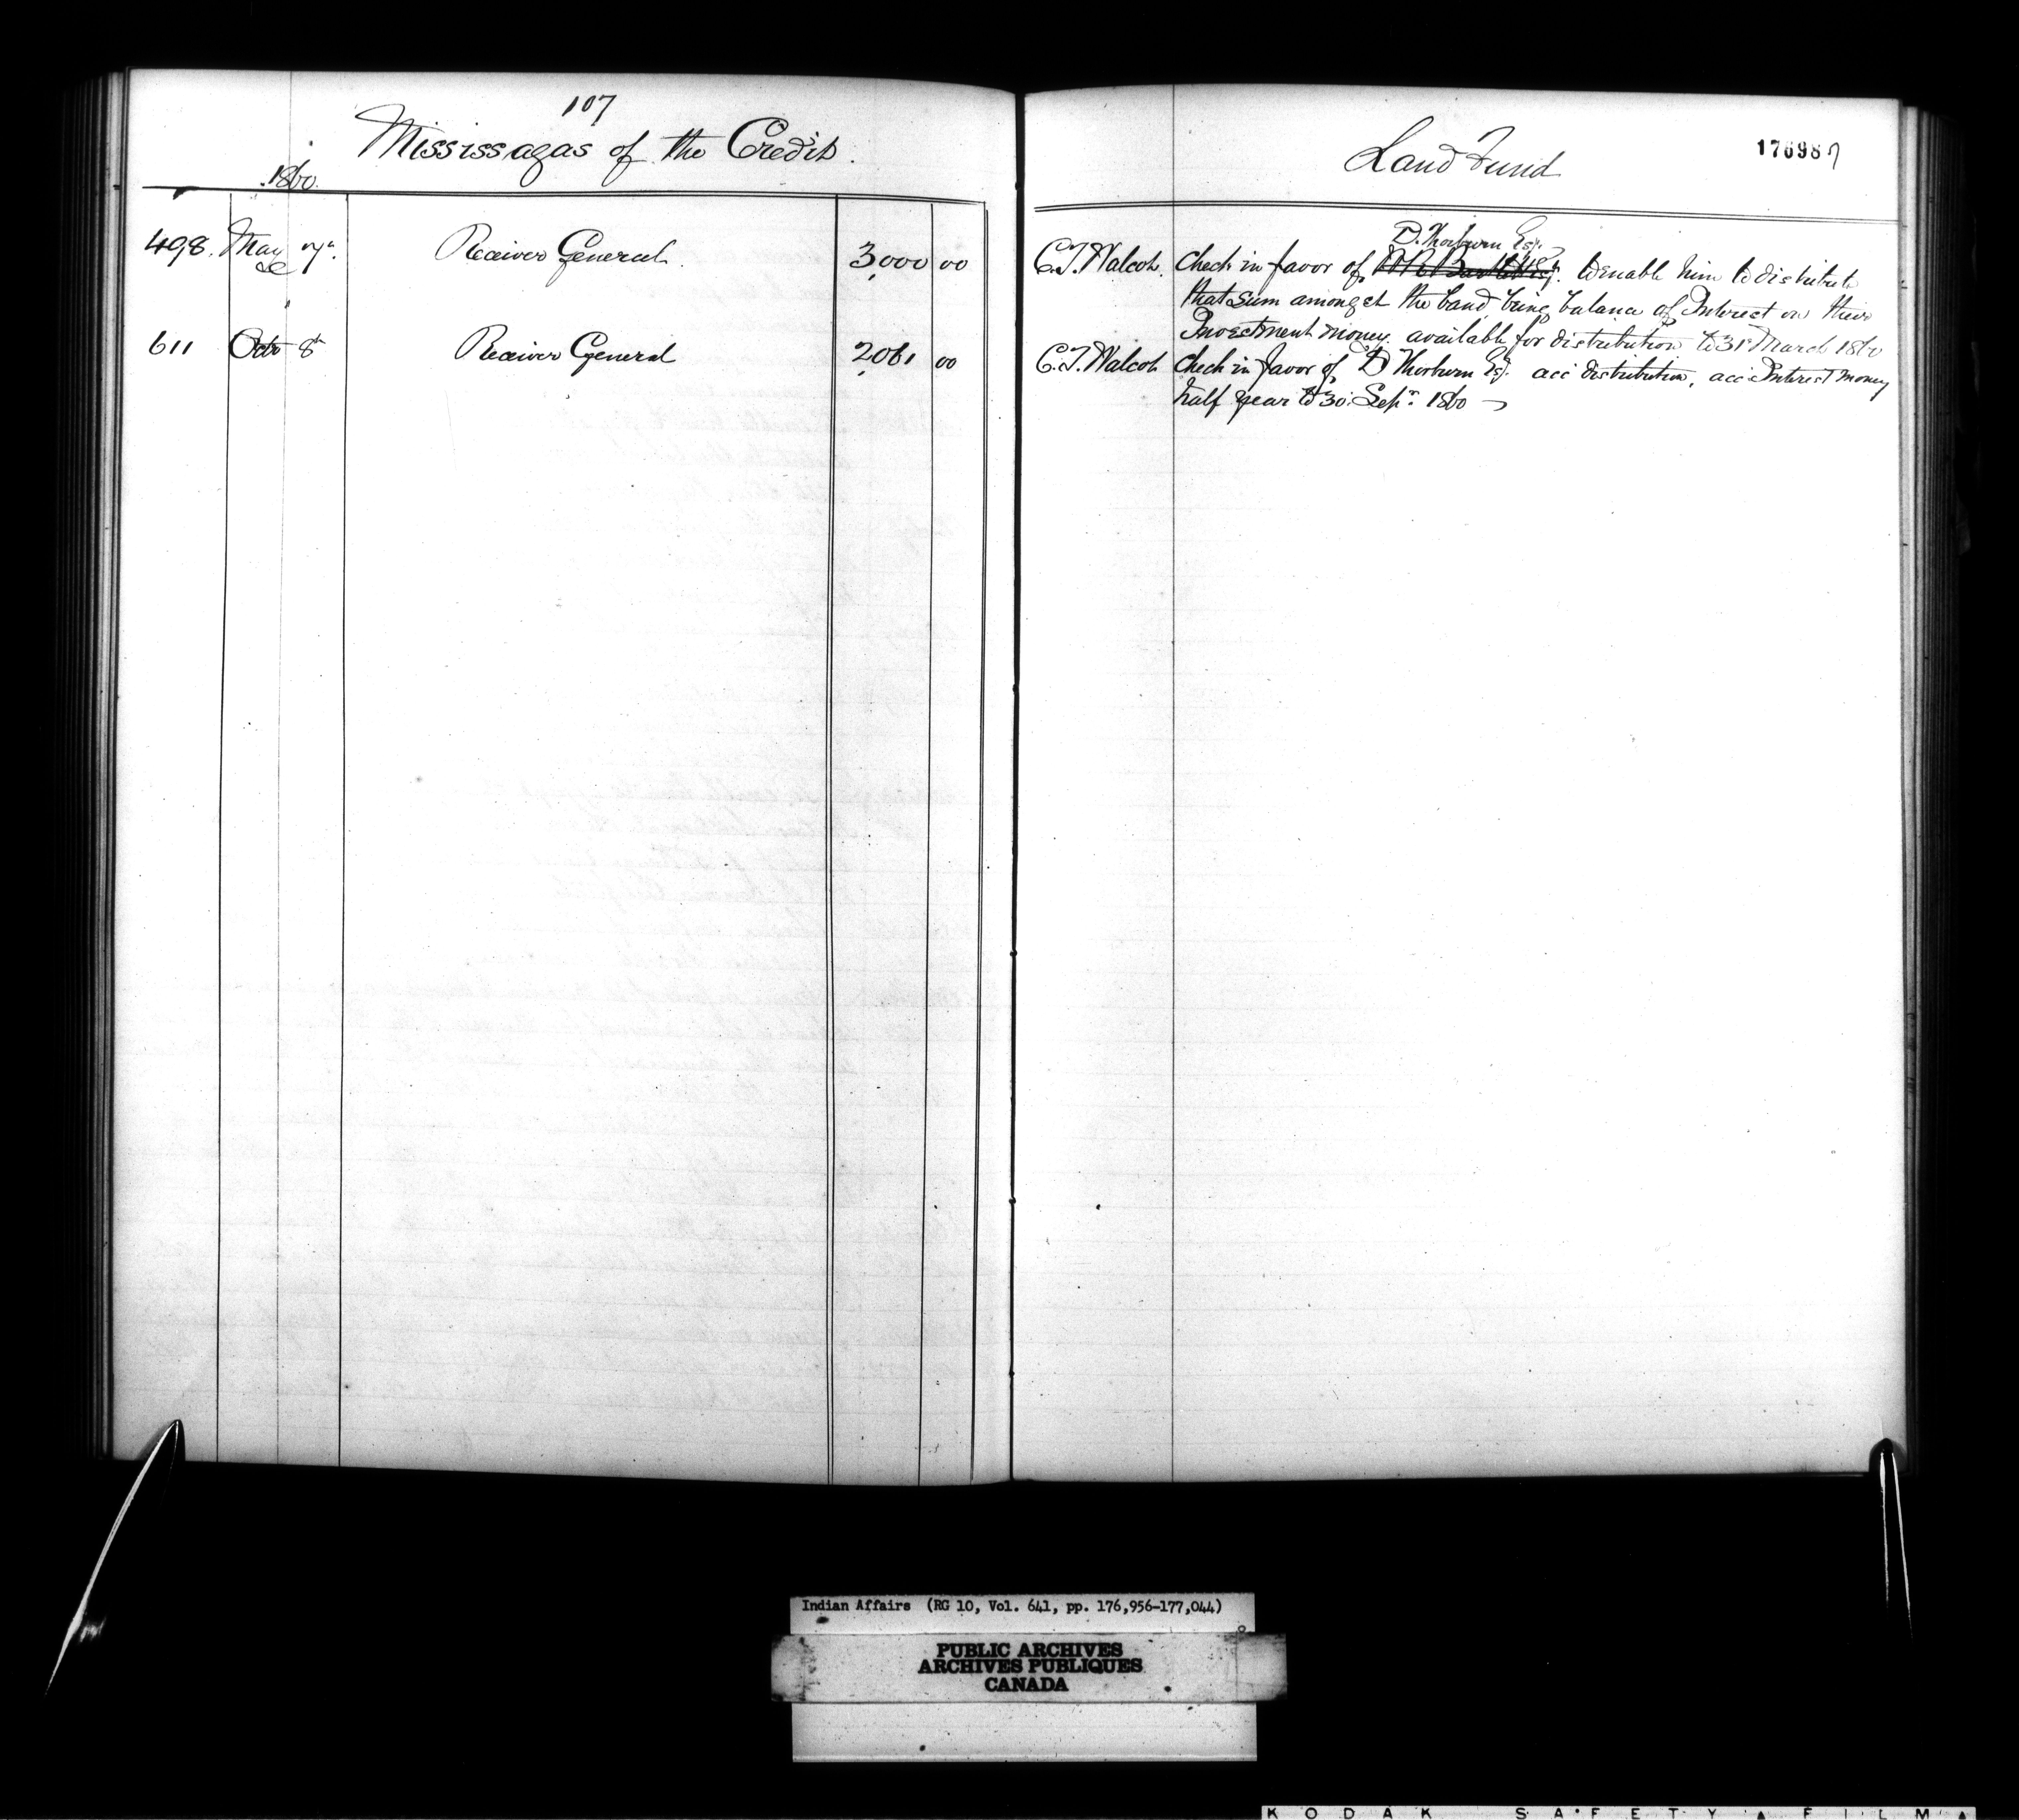 107
Mississagas of the Credit.
1860.
498. May 7th Receiver General. 3,000 00
611 Octr 8th Receiver General 2,061 00
Land Fund
176987
D. Thorburn Esqr
C.T. Walcot. Check in favor of W R Bartlett Esq. to enable him to distribute
that sum amongst the band, being balance of Interest on their
Investment money. available for distribution to 31st March 1860
C.T. Walcot Check in favor of D Thorburn Esqr. acc distribution, acc Interest money
half year to 30 Sepr. 1860
Indian Affairs (RG 10, Vol. 641, pp. 176,956-177,044)
PUBLIC ARCHIVES
ARCHIVES PUBLIQUES
CANADA
KODAK SAFETY FILM